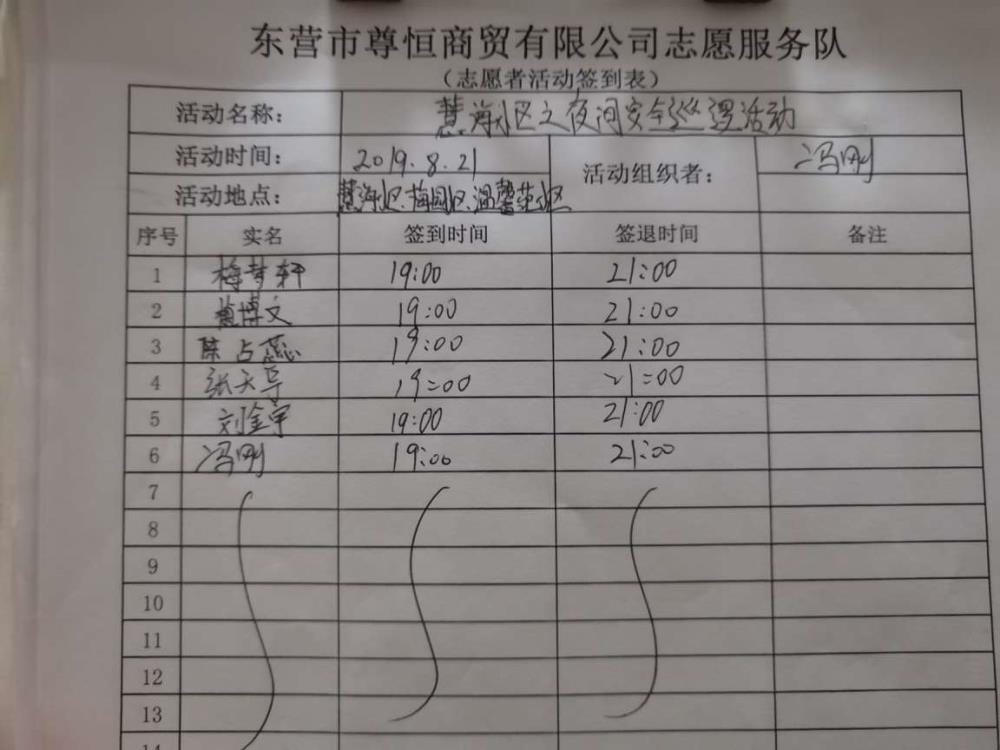 东营市尊恒商贸有限公司志愿服务队
（志愿者活动签到表）
活动名称： 慧海小区之夜间安全巡逻活动
活动时间： 2019.8.21 活动组织者： 冯刚
活动地点： 慧海小区、梅园小区、温馨苑小区
序号 实名 签到时间 签退时间 备注
1 梅梦轩 19:00 21:00
2 博文 19:00 21:00
3 陈占蕊 19:00 21:00
4 张天 19:00 21:00
5 刘金宇 19:00 21:00
6 冯刚 19:00 21:00
7
8
9
10
11
12
13
14